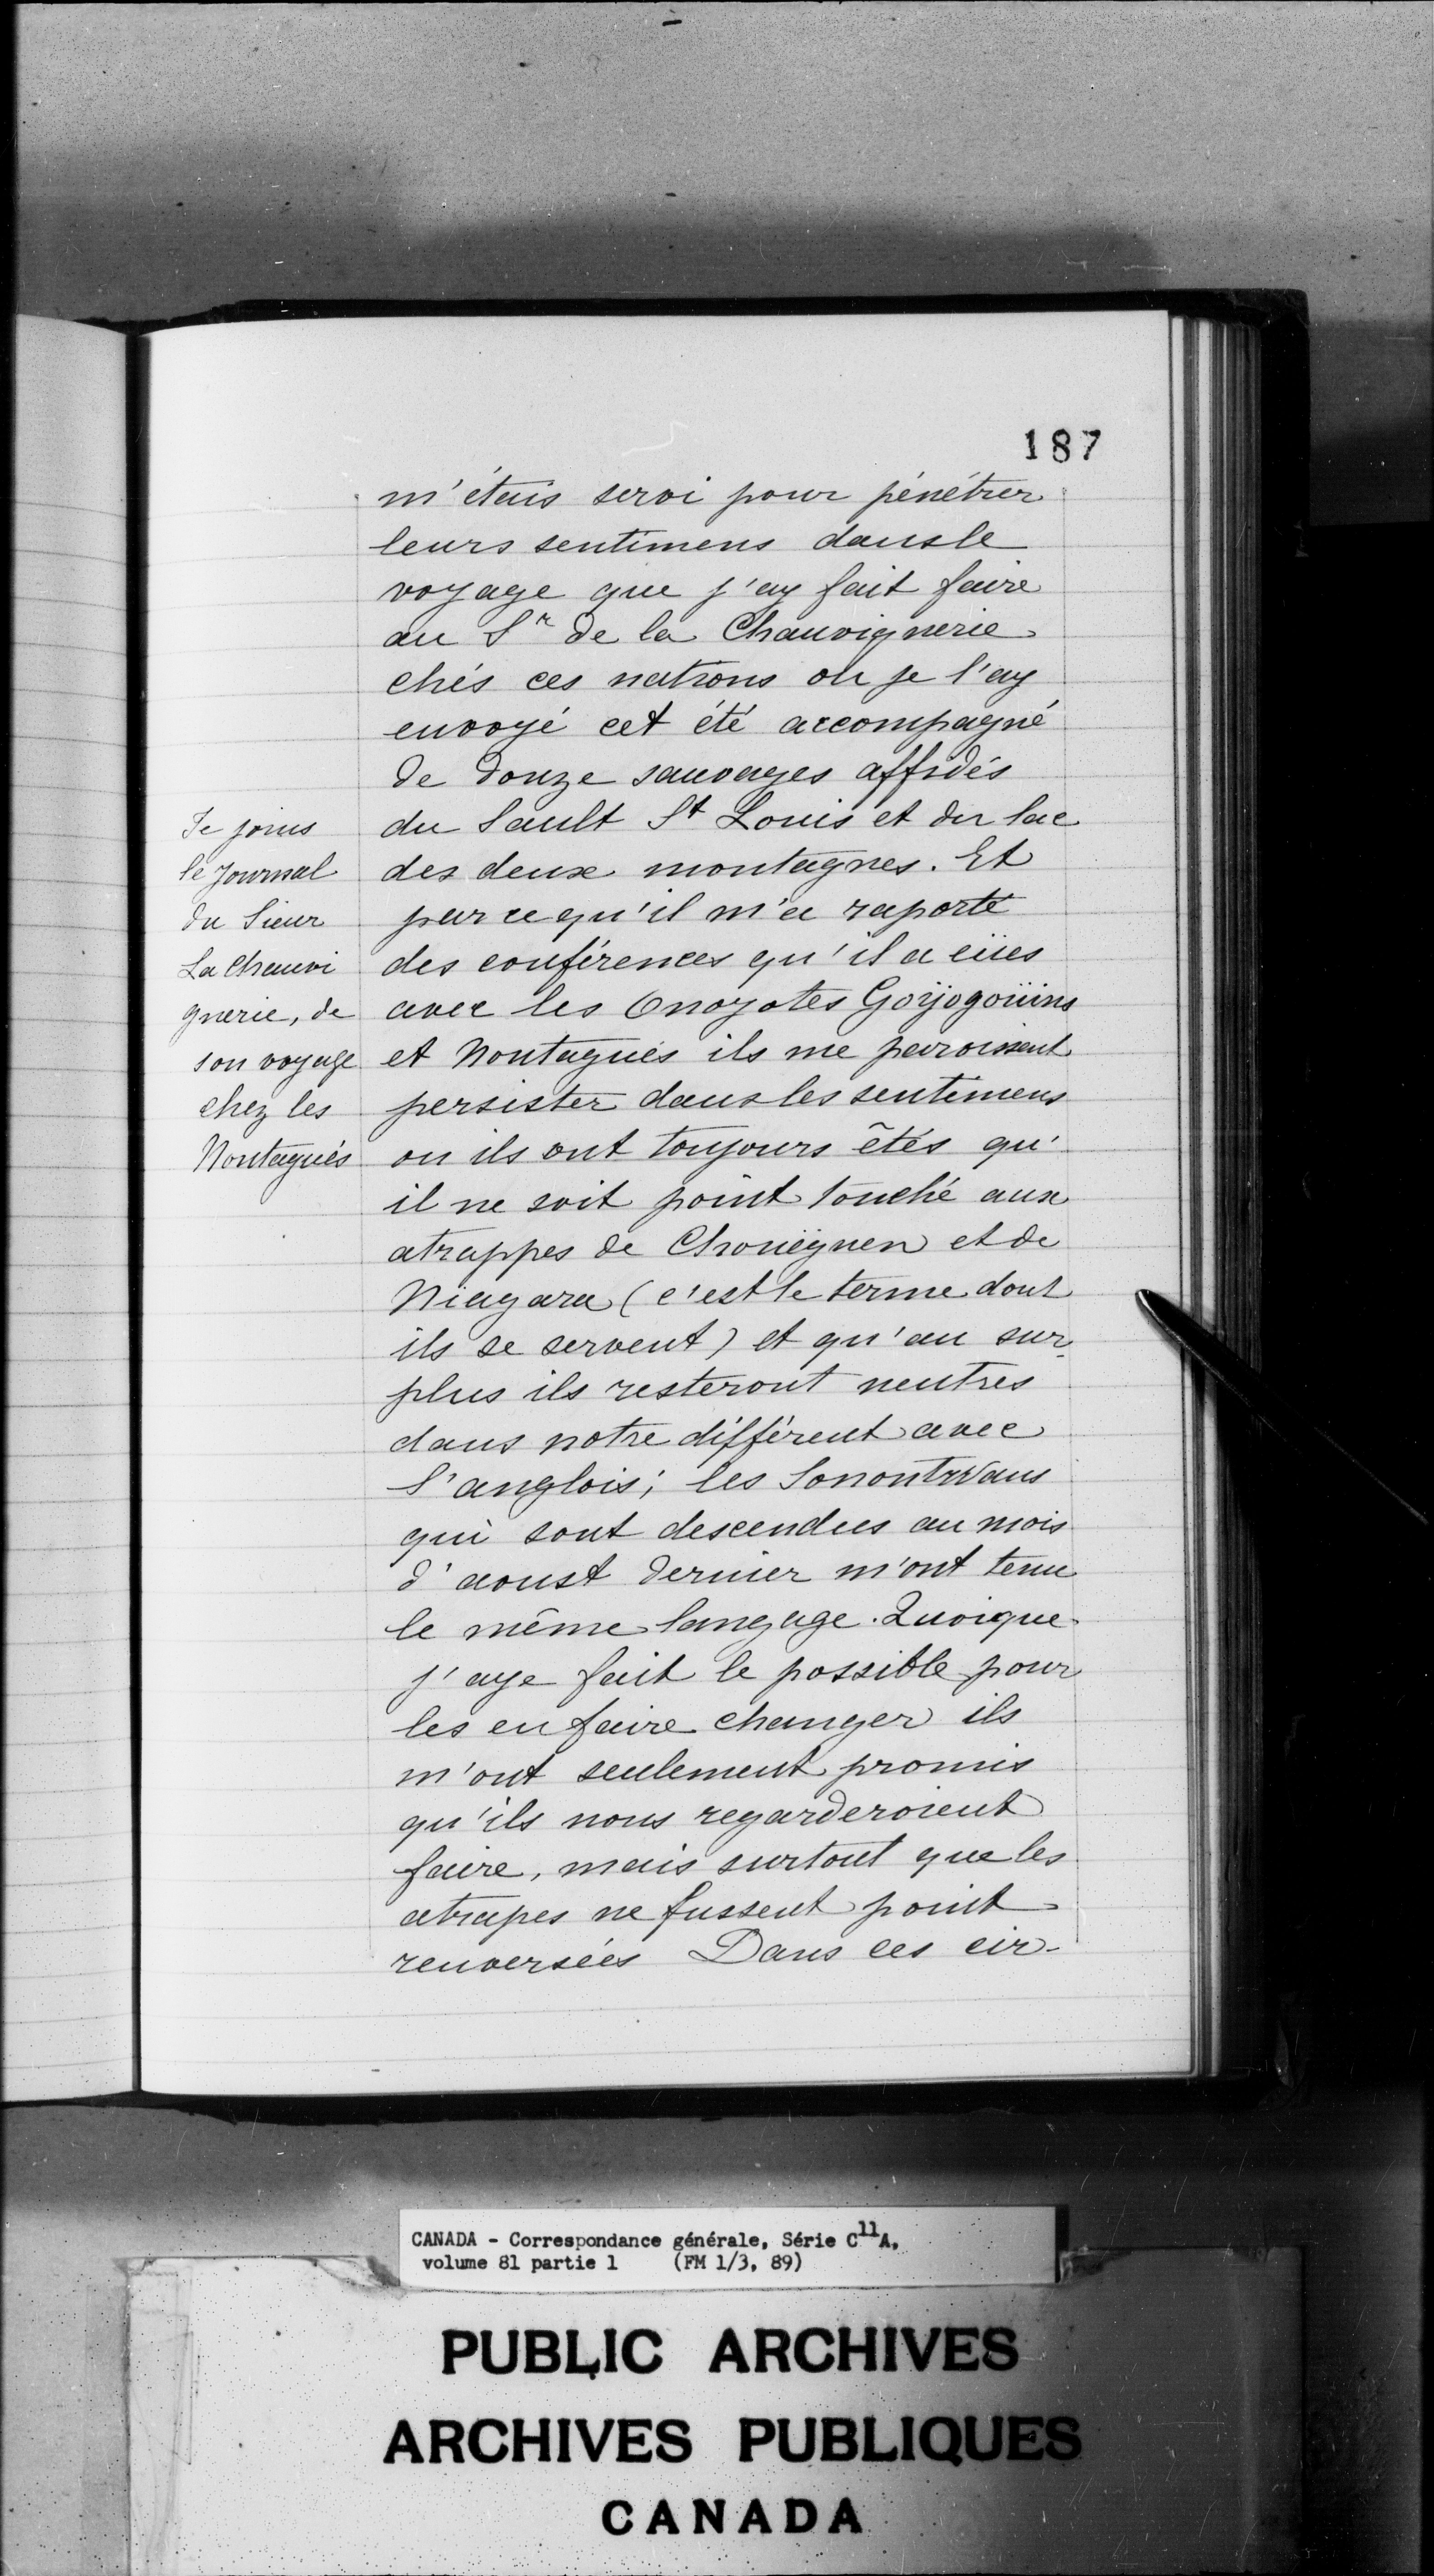 187
m'étais servi pour pénétrer
leurs sentimens dans le
voyage que j'ay fait faire
au Sr de la Chauvignerie
chés ces nations où je l'ay
envoyé cet été accompagné
de douze sauvages affidés
du Sault St Louis et du lac
des deux montagnes. Et
par ce qu'il m'a raporté
des conférences qu'il a eües
avec les Onoyotes Goÿogoüins
et Nontagués ils me paroissent
persister dans les sentimens
ou ils ont toujours êtés qu'
il ne soit point touché aux
atrappes de Chouëgnen et de
Niagara (c'est le terme dont
ils se servent) et qu'au sur
plus ils resteront neutres
dans notre différent avec
l'anglois; les Sonontwans
qui sont descendus au mois
d'aoust dernier m'ont tenu
le même langage. Quoique
j'aye fait le possible pour
les en faire changer ils
m'ont seulement promis
qu'ils nous regarderoient
faire, mais surtout que les
atrapes ne fussent point
renversées Dans ces cir-
Je joins
le Journal
du Sieur
La Chauvi
gnerie, de
son voyage
chez les
Nontagués
CANADA - Correspondance générale, Série C11A,
volume 81 partie 1 (FM 1/3, 89)
PUBLIC ARCHIVES
ARCHIVES PUBLIQUES
CANADA